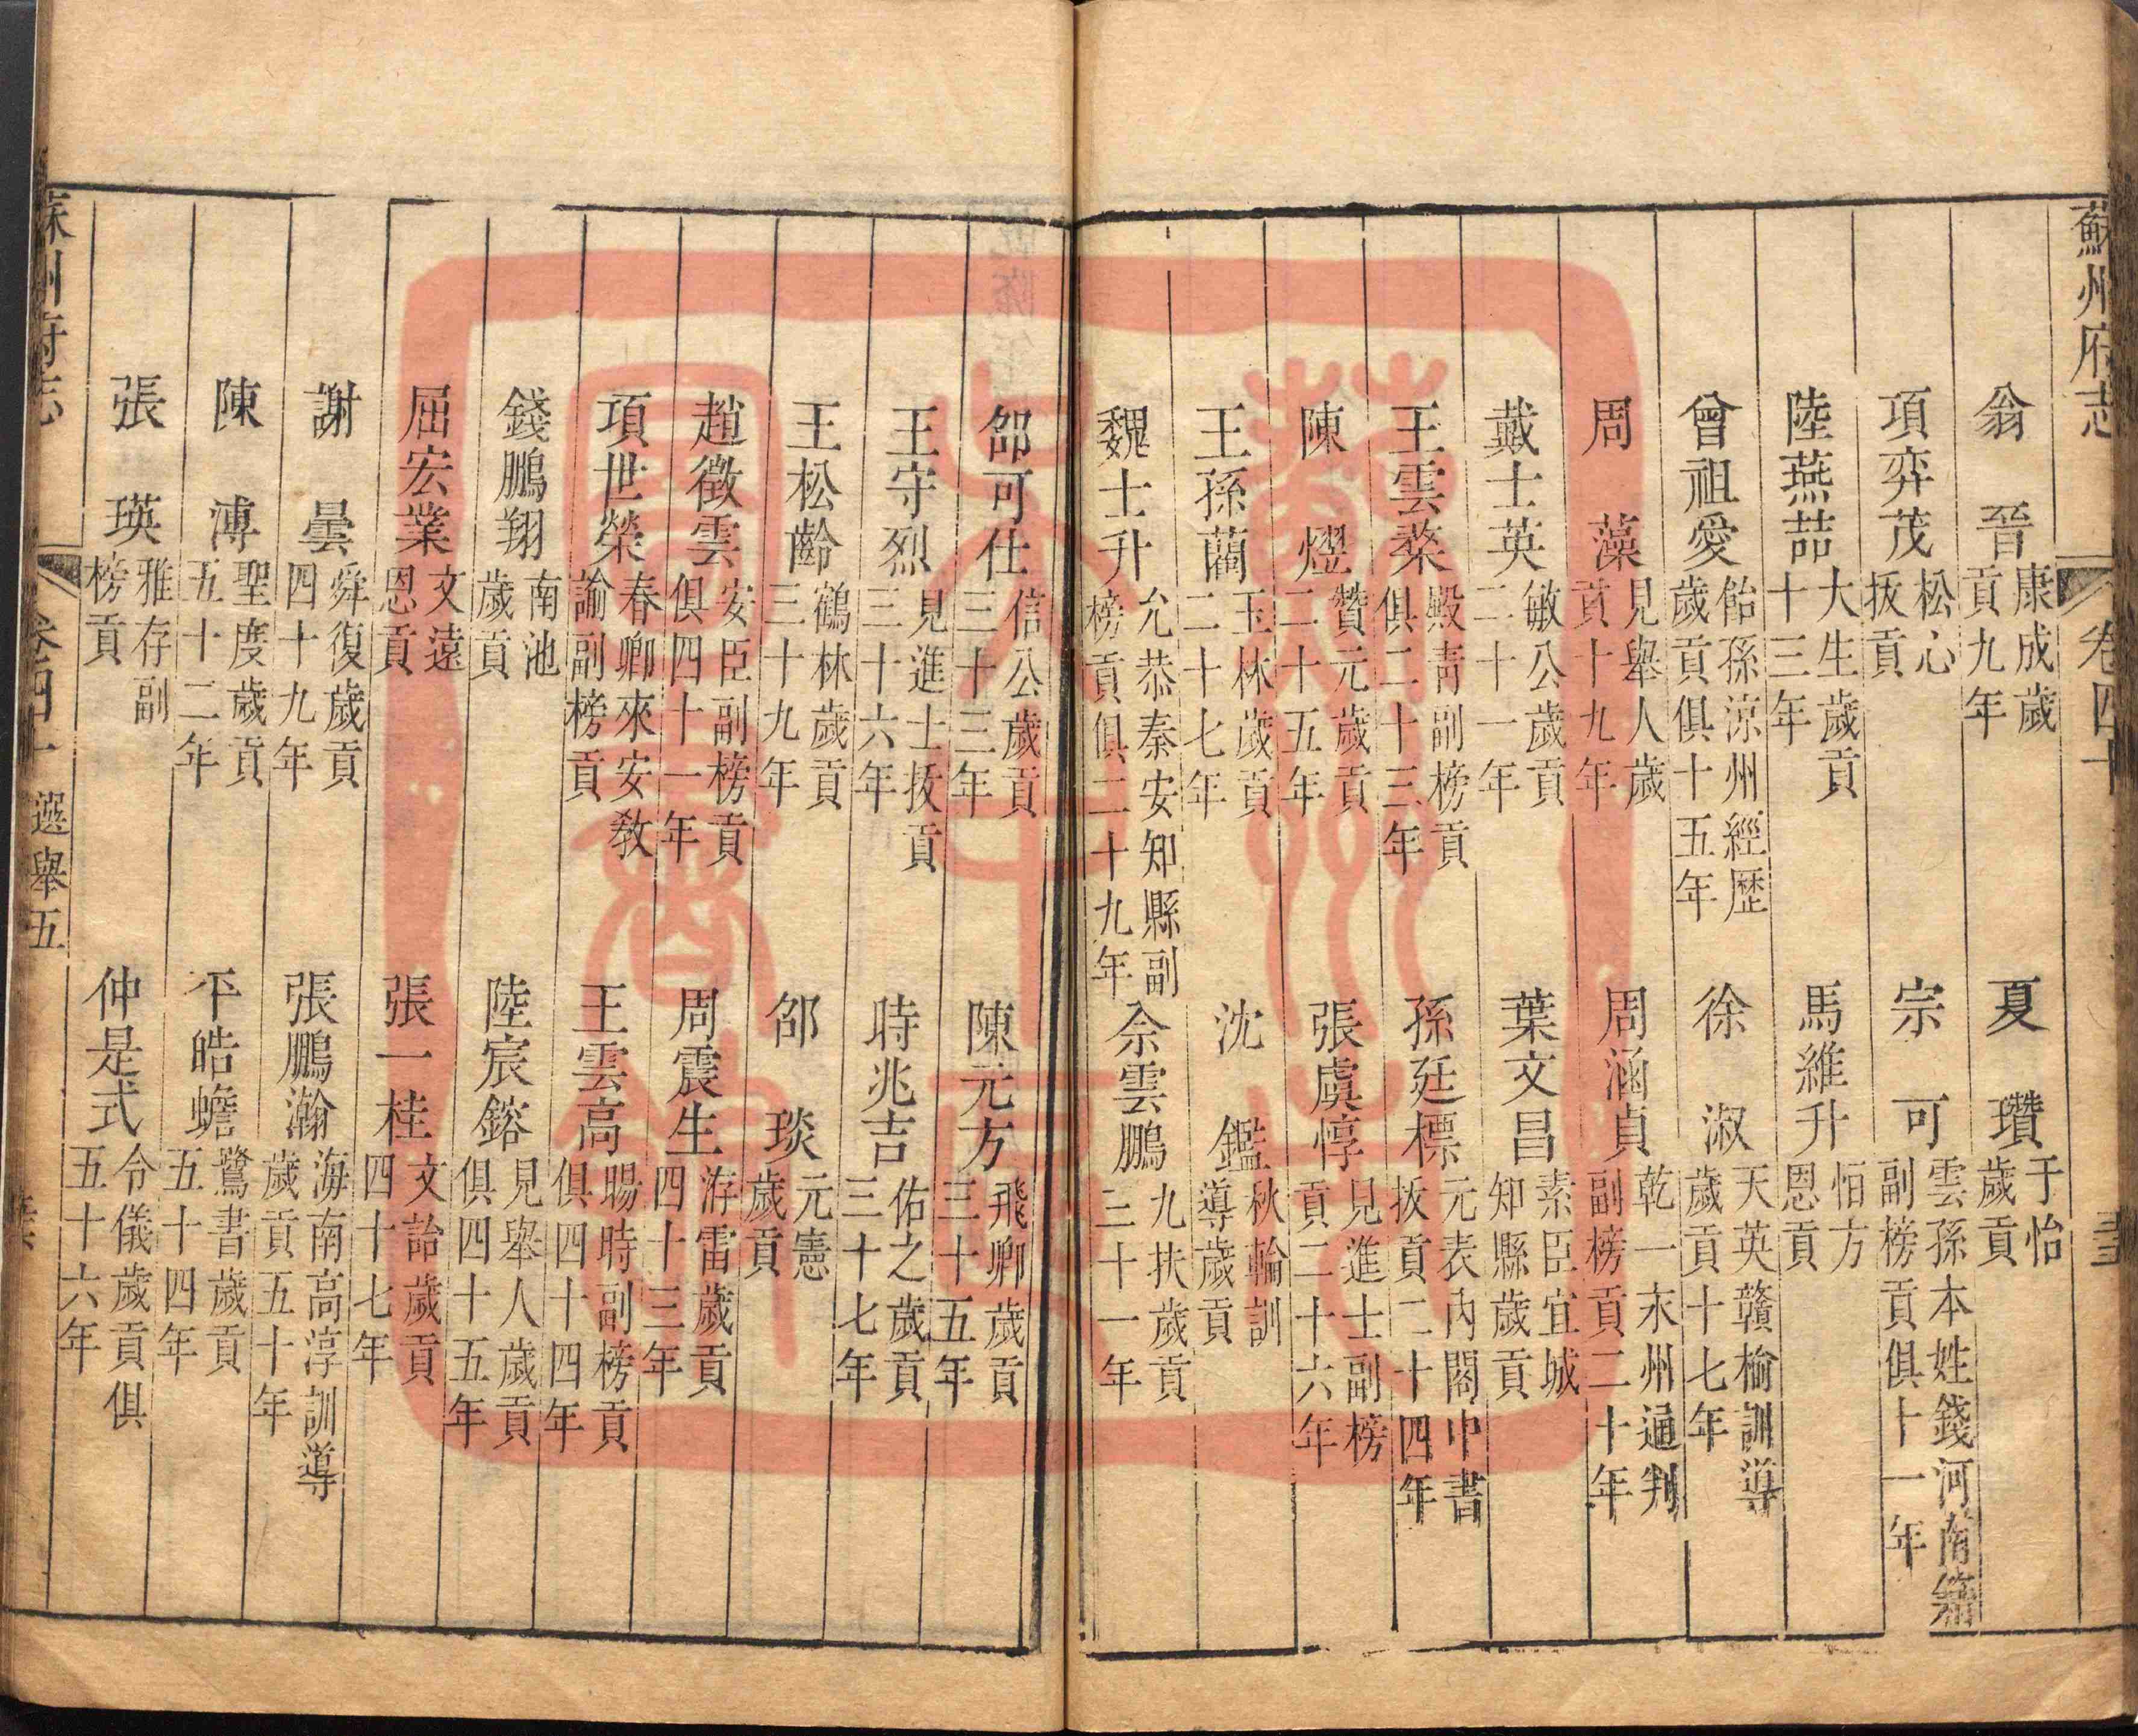 蘇州府志 卷四十
翁晉 康成歲貢九年 夏瓚 于怡歲貢
項弈茂 松心拔貢 宗可 雲孫本姓錢河南籍副榜貢俱十一年
陸燕喆 大生歲貢十三年 馬維升 恒方恩貢
曾祖愛 飴孫涼州經歷歲貢俱十五年 徐淑 天英贛榆訓導歲貢十七年
周藻 見舉人歲貢十九年 周涵貞 乾一永州通判副榜貢二十年
戴士英 敏公歲貢二十一年 葉文昌 素臣宜城知縣歲貢
王雲桑 殿青副榜貢俱二十三年 孫廷標 元表內閣中書拔貢二十四年
陳熤 贊元歲貢二十五年 張虞惇 見進士副榜貢二十六年
王孫藺 玉林歲貢二十七年 沈鑑 秋輪訓導歲貢
魏士升 允恭秦安知縣副榜貢俱二十九年 佘雲鵬 九扶歲貢三十一年
邵可仕 信公歲貢三十三年 陳元方 飛卿歲貢三十五年
王守烈 見進士拔貢三十六年 時兆吉 佑之歲貢三十七年
王松齡 鶴林歲貢三十九年 邵琰 元憲歲貢
趙徵雲 安臣副榜貢俱四十一年 周震生 洊雷歲貢四十三年
項世榮 春卿來安敎諭副榜貢 王雲高 暘時副榜貢俱四十四年
錢鵬翔 南池歲貢 陸宸鎔 見舉人歲貢俱四十五年
屈宏業 文遠恩貢 張一桂 文詒歲貢四十七年
謝曇 舜復歲貢四十九年 張鵬瀚 海南高淳訓導歲貢五十年
陳溥 聖度歲貢五十二年 平皓蟾 鷟書歲貢五十四年
張瑛 雅存副榜貢 仲是式 令儀歲貢俱五十六年
蘇州府志 卷四十 選舉五